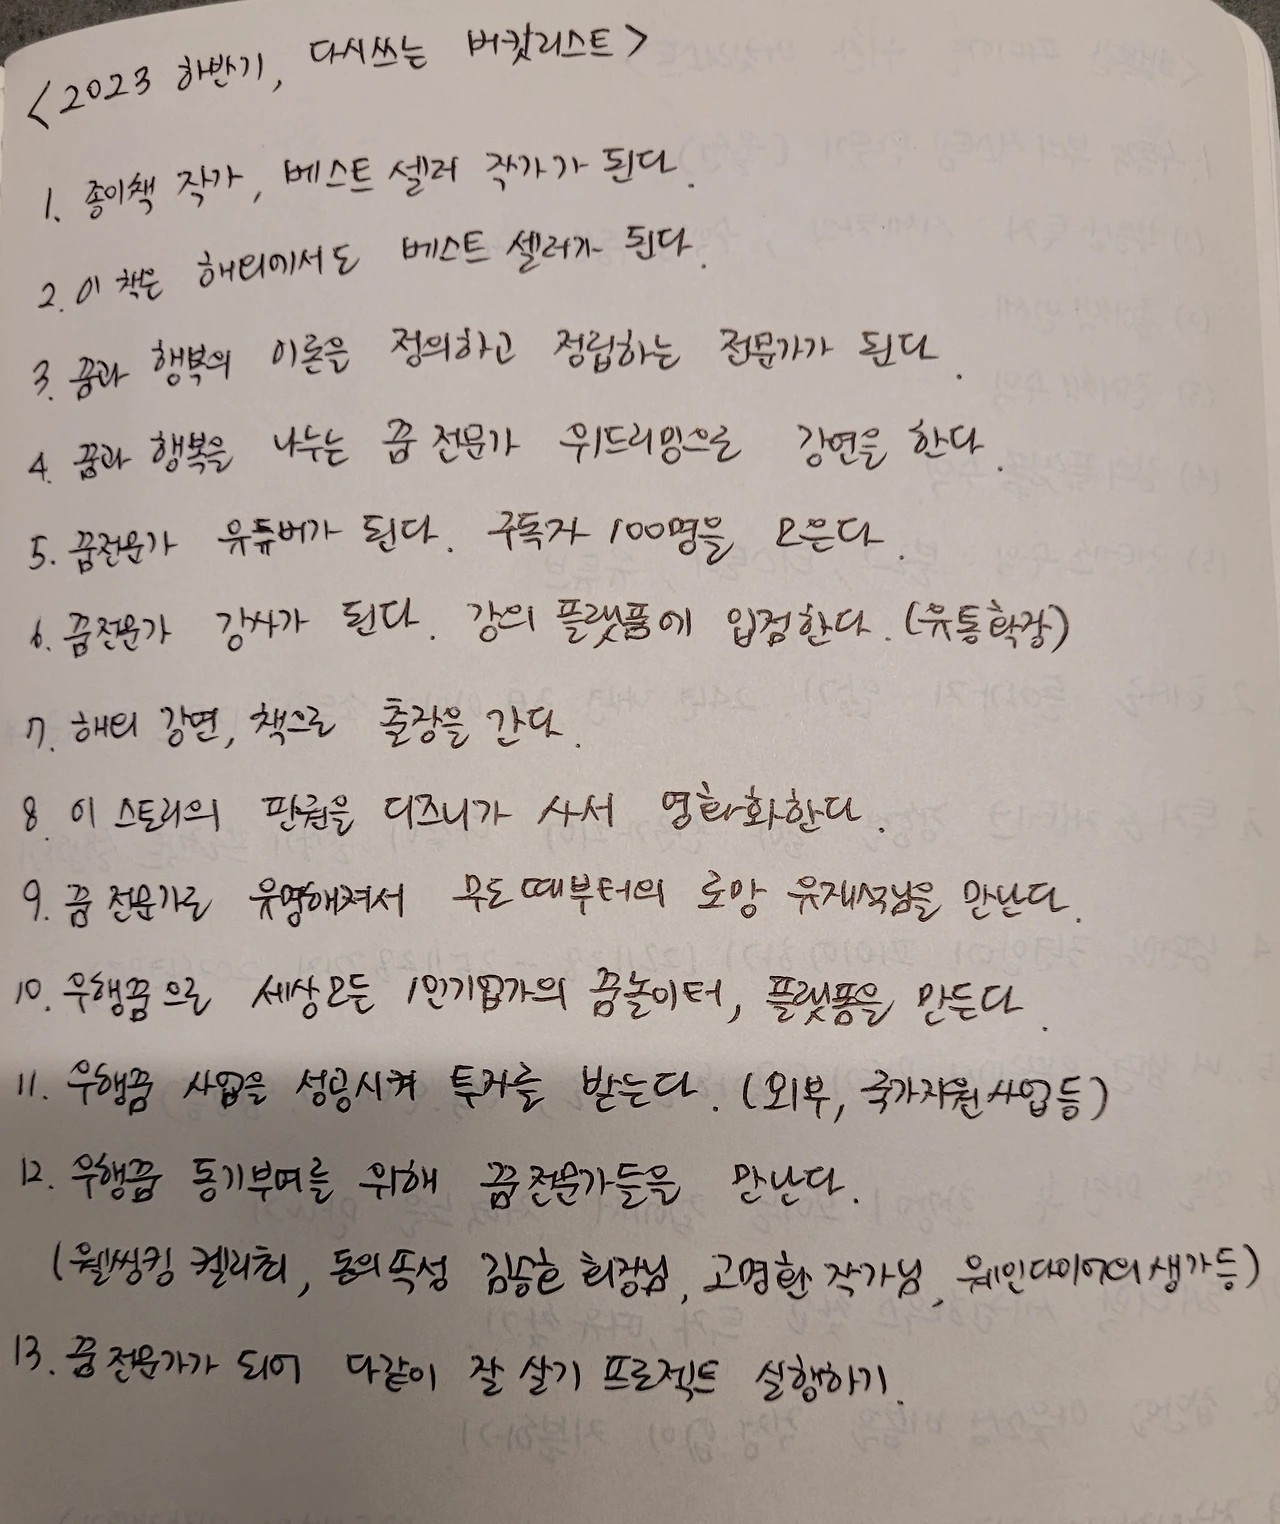 <2023 하반기, 다시쓰는 버킷리스트>
1. 종이책 작가, 베스트 셀러 작가가 된다.
2. 이 책은 해외에서도 베스트 셀러가 된다.
3. 꿈과 행복의 이론을 정의하고 정립하는 전문가가 된다.
4. 꿈과 행복을 나누는 꿈 전문가 위드리밍으로 강연을 한다.
5. 꿈전문가 유튜버가 된다. 구독자 100명을 모은다.
6. 꿈전문가 강사가 된다. 강의 플랫폼에 입점한다. (유통확장)
7. 해외 강연, 책으로 출장을 간다.
8. 이 스토리의 판권을 디즈니가 사서 영화화한다.
9. 꿈 전문가로 유명해져서 무도때부터의 로망 유재석님을 만난다.
10. 우행꿈으로 세상모든 1인기업가의 꿈놀이터, 플랫폼을 만든다.
11. 우행꿈 사업을 성공시켜 투자를 받는다. (외부, 국가지원사업등)
12. 우행꿈 동기부여를 위해 꿈전문가들을 만난다.
(웰씽킹 켈리최, 돈의속성 김승호 회장님, 고명환 작가님, 웨인다이어의 생가등)
13. 꿈 전문가가 되어 다같이 잘 살기 프로젝트 실행하기.